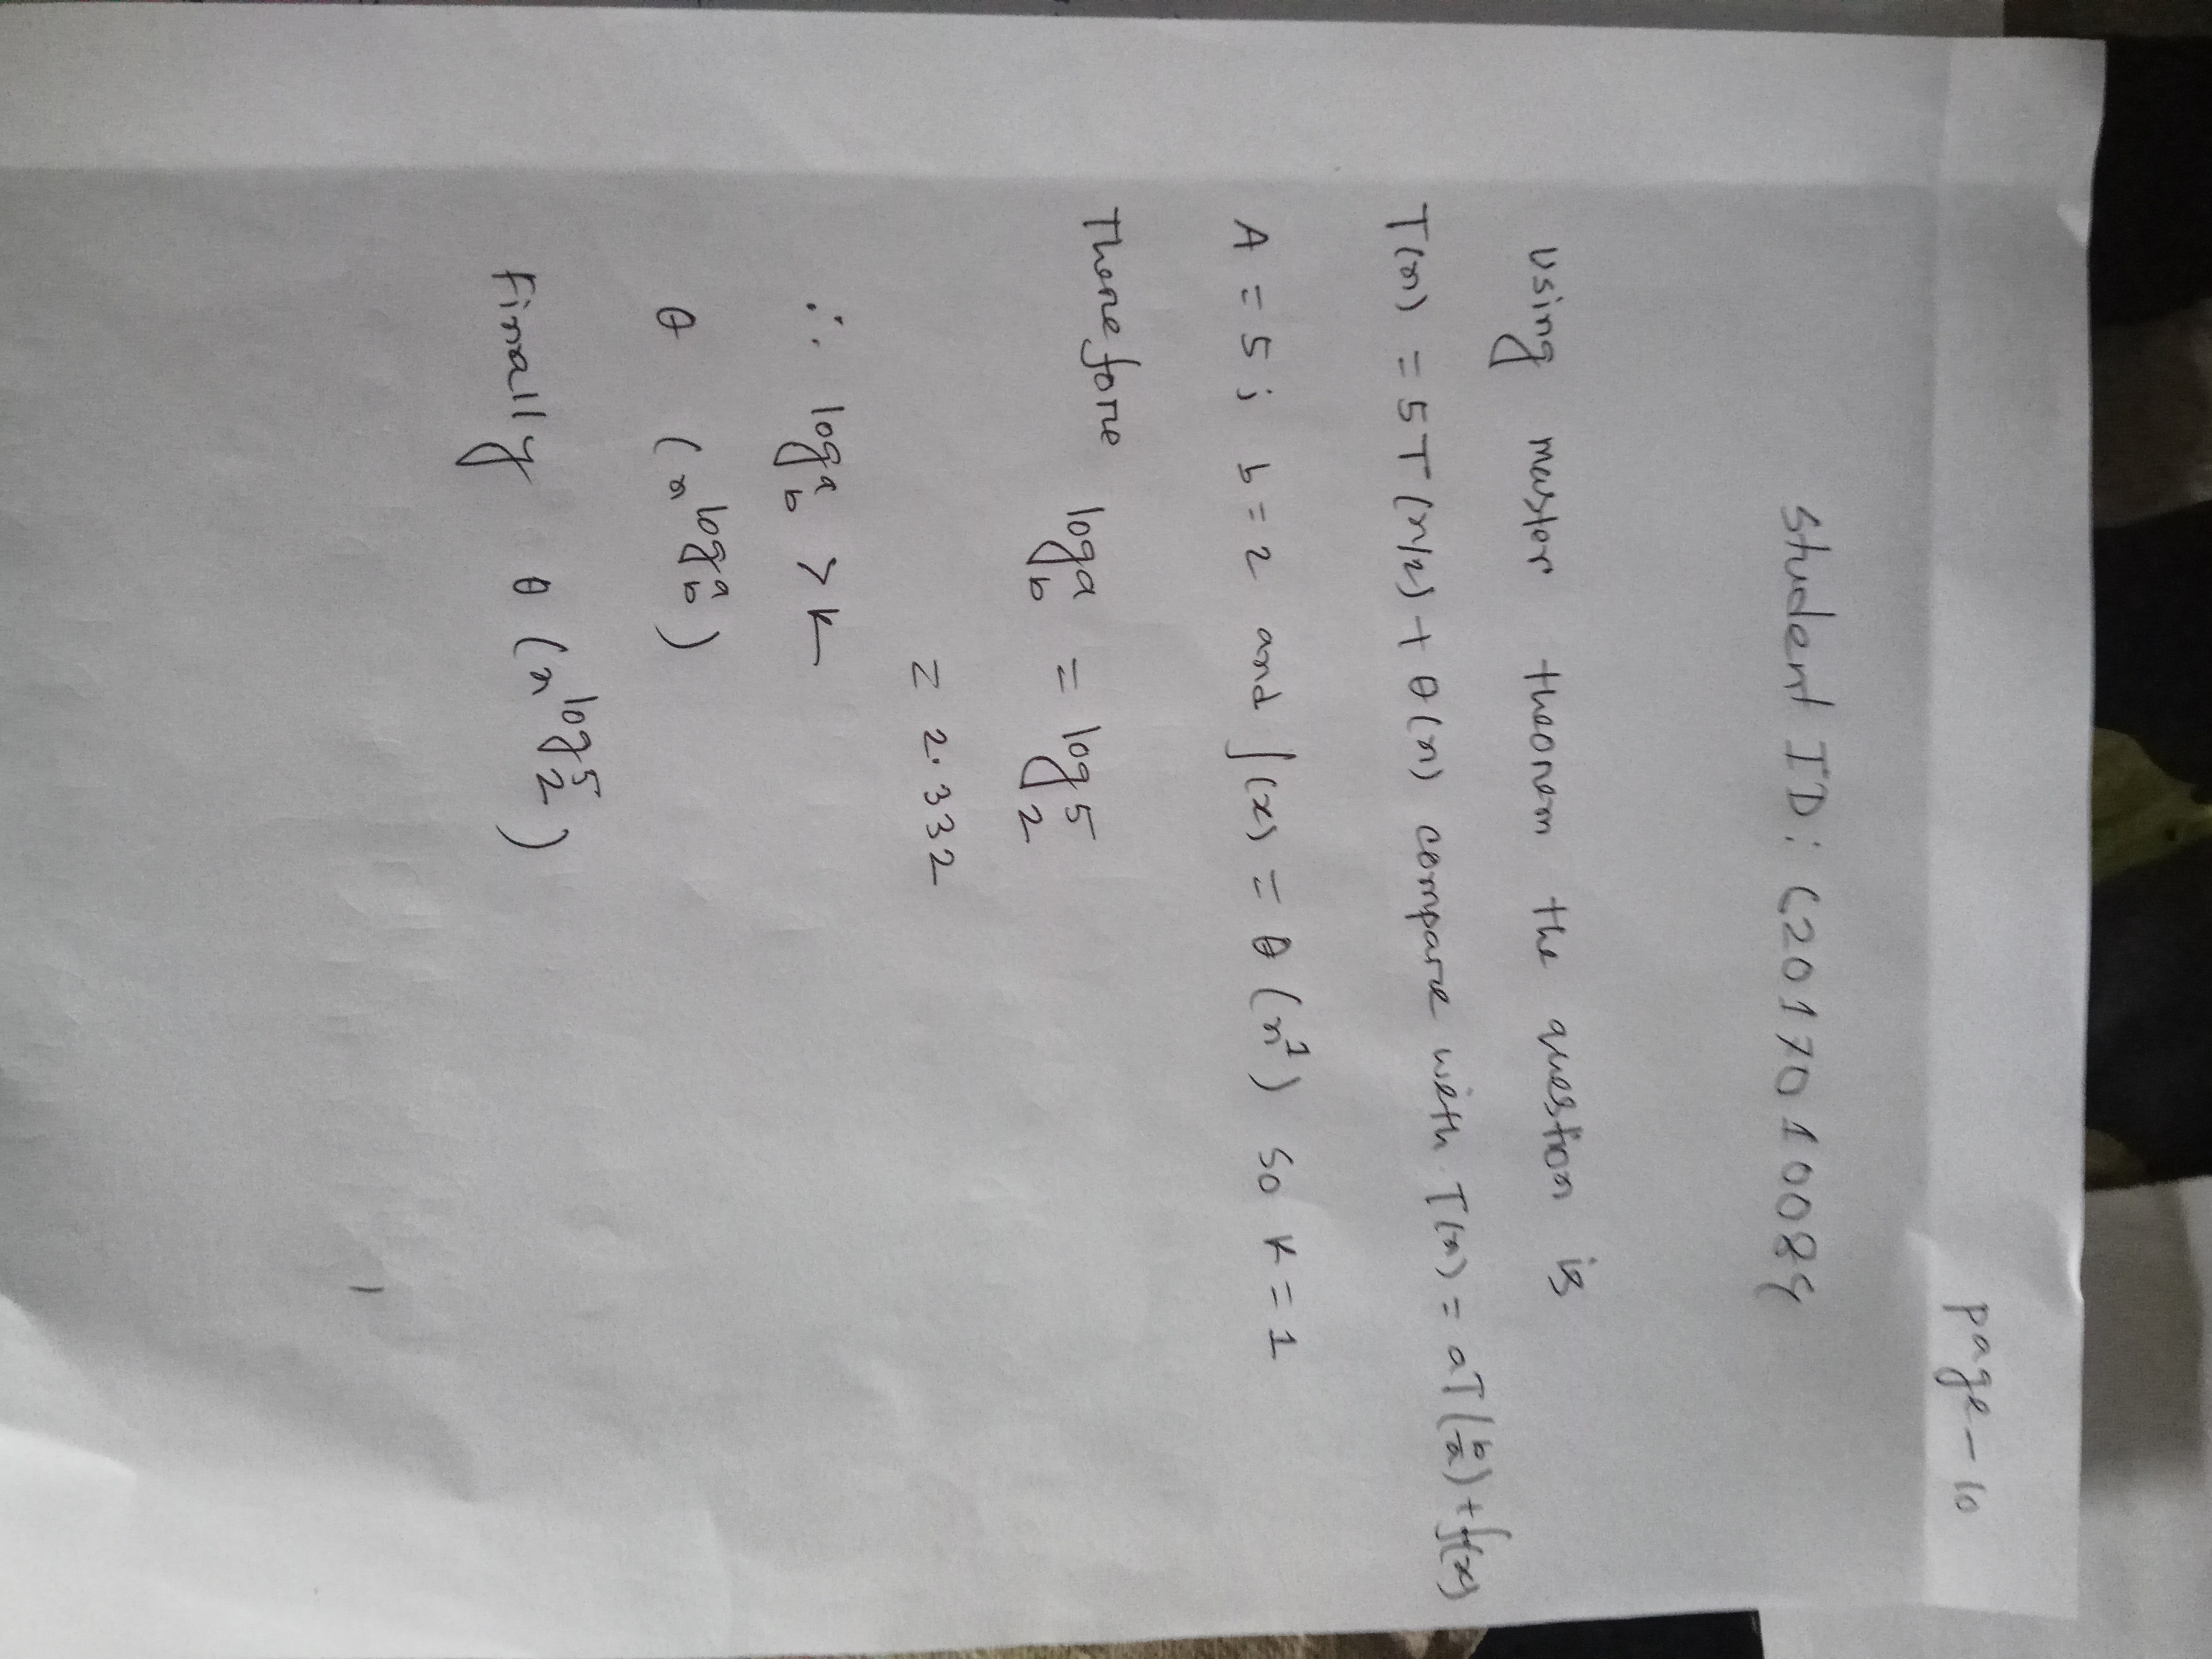 Page-10
Student ID: C2017010089
Using mastor theorem the question is
T(n) = 5T(n/2) + θ(n) compare with T(n) = aT(b/a) + f(x)
A = 5; b = 2 and f(x) = θ(n^1) so k = 1
Therefore log_b^a = log_2^5
= 2.332
∴ log_b^a > k
θ (n^log_b^a)
Finally θ (n^log_2^5)